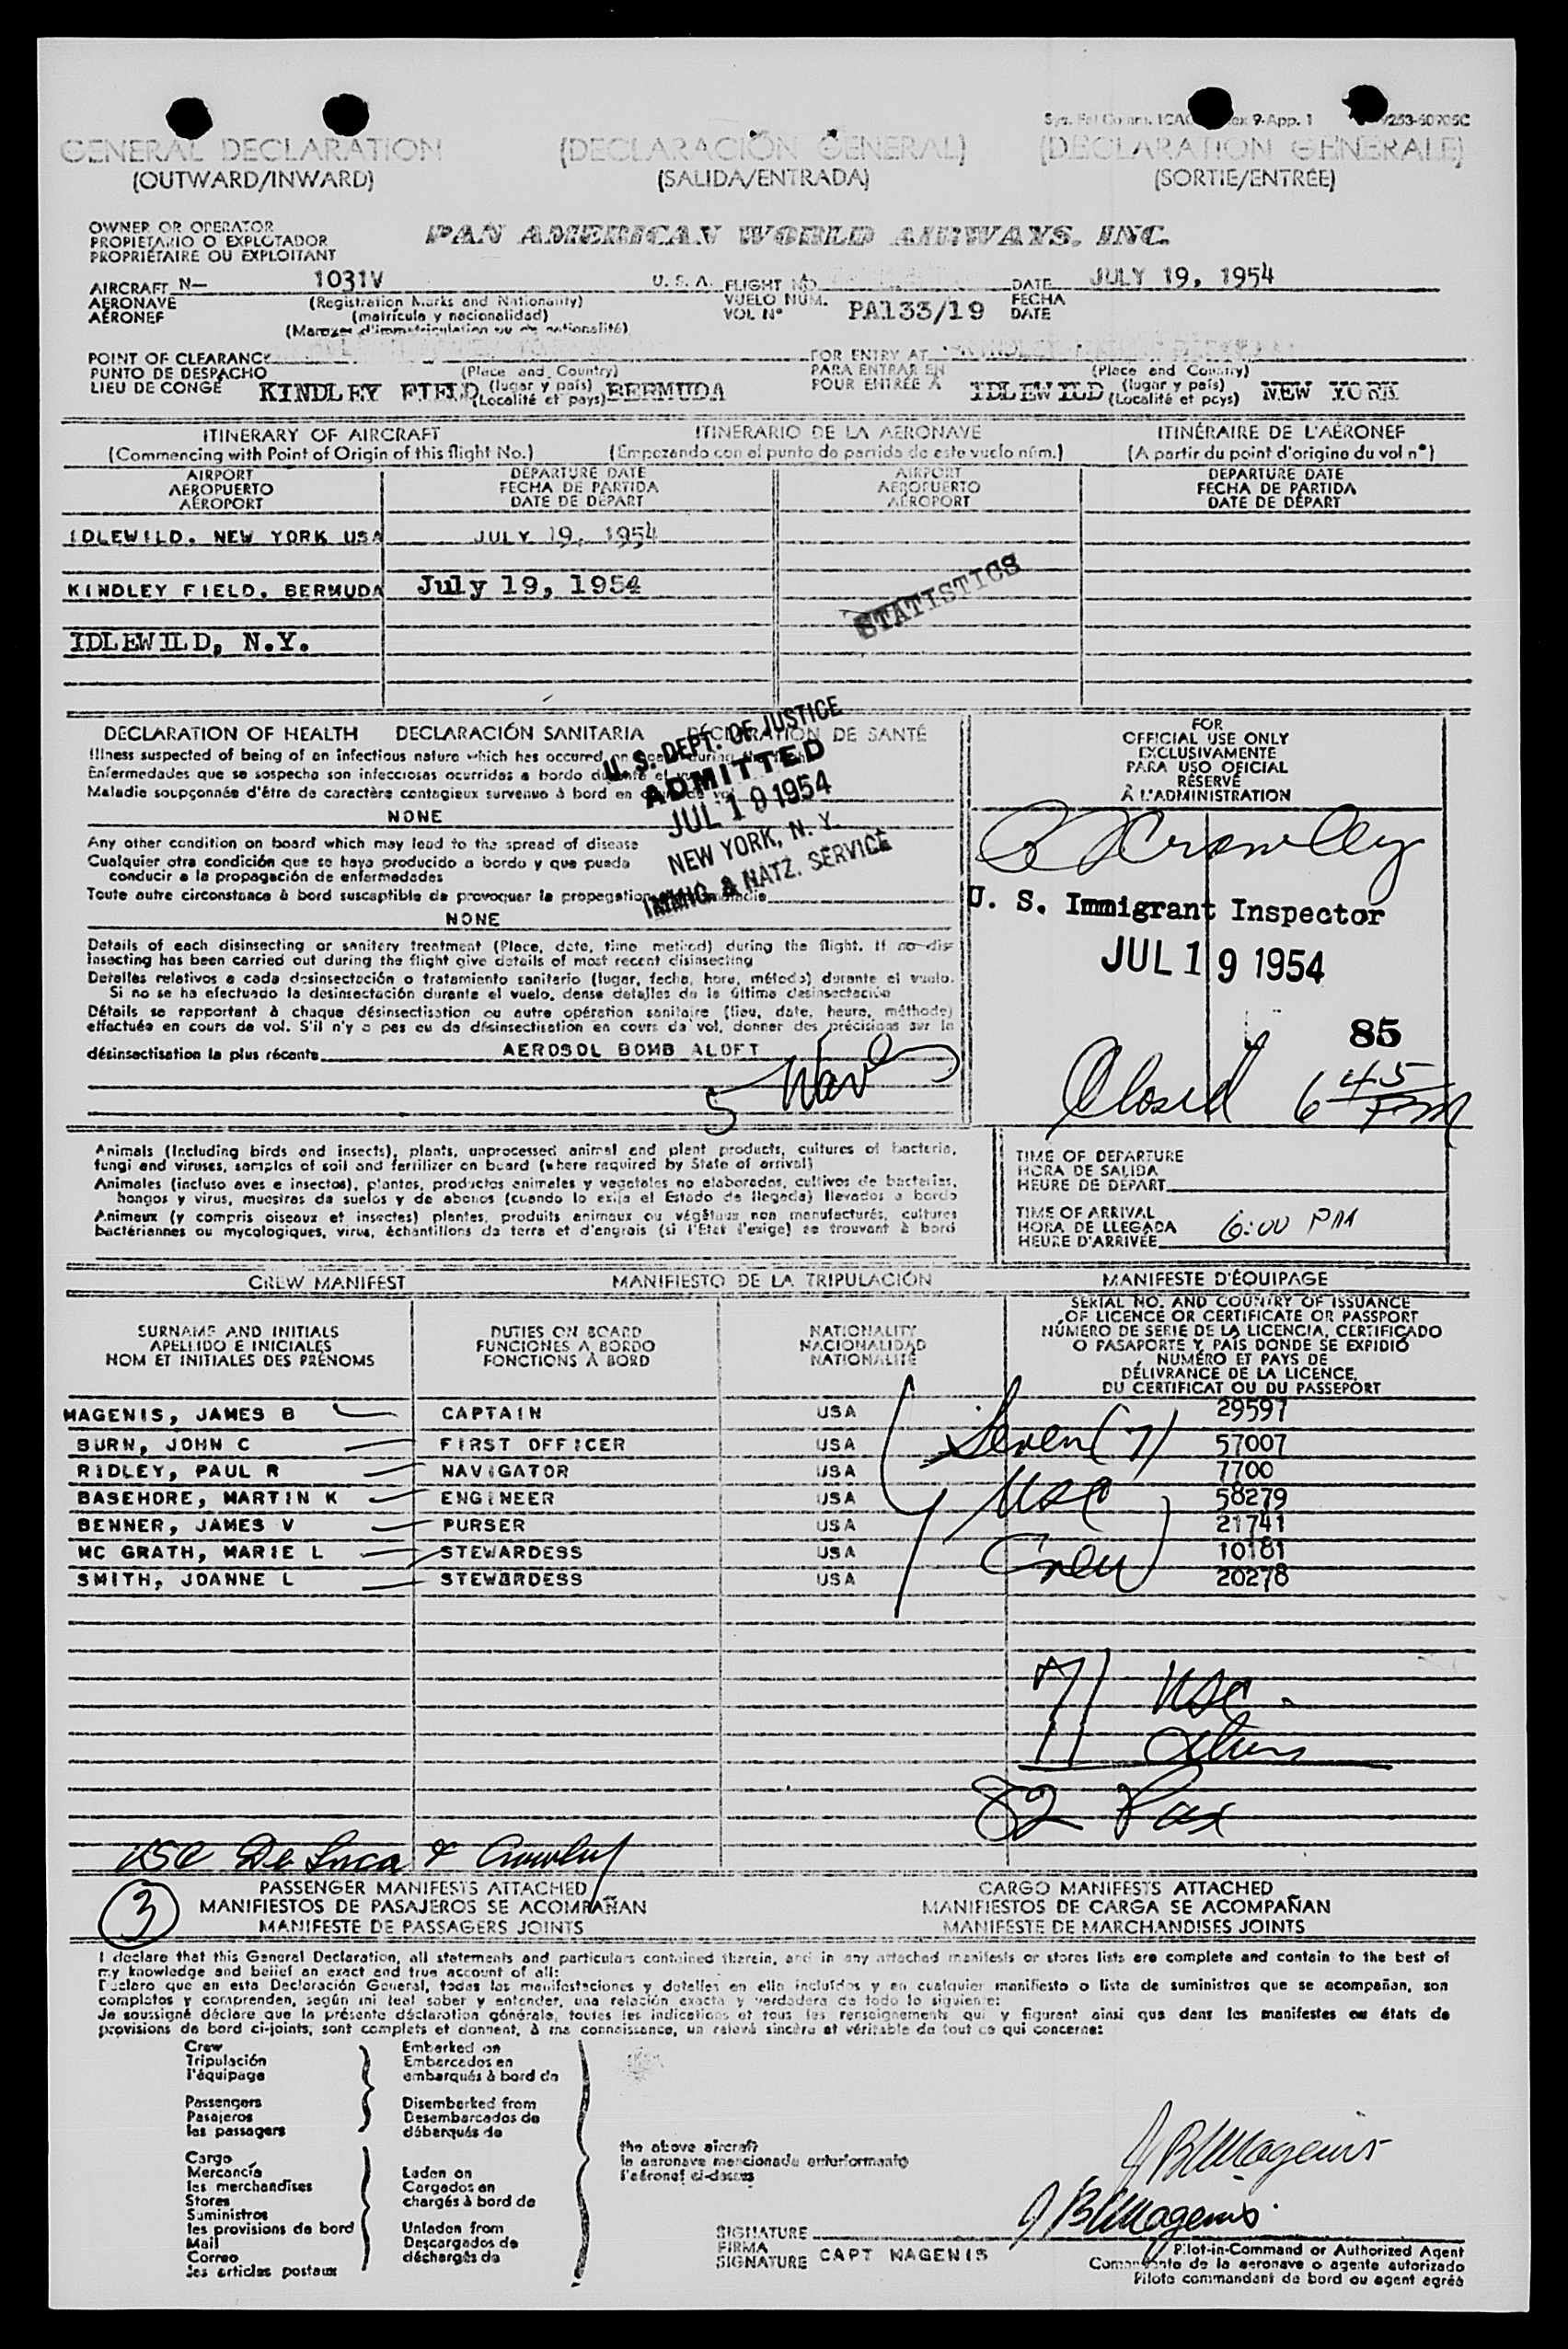 GENERAL DECLARATION (DECLARACIÓN GENERAL) (DECLARATION GENERALE)
(OUTWARD/INWARD) (SALIDA/ENTRADA) (SORTIE/ENTRÉE)
OWNER OR OPERATOR
PROPIETARIO O EXPLOTADOR
PROPRIÉTAIRE OU EXPLOITANT
PAN AMERICAN WORLD AIRWAYS, INC.
AIRCRAFT N— 1031V U. S. A. FLIGHT NO. DATE JULY 19, 1954
AERONAVE (Registration Marks and Nationality) VUELO NUM. PA133/19 FECHA
AÉRONEF (matrícula y nacionalidad) VOL Nº DATE
(Marques d'immatriculation ou de nationalité)
POINT OF CLEARANCE FOR ENTRY AT
PUNTO DE DESPACHO (Place and Country) PARA ENTRAR EN (Place and Country)
LIEU DE CONGÉ KINDLEY FIELD, (lugar y país) BERMUDA POUR ENTRÉE A IDLEWILD (lugar y país) NEW YORK
(Localité et pays) (Localité et pays)
ITINERARY OF AIRCRAFT ITINERARIO DE LA AERONAVE ITINÉRAIRE DE L'AÉRONEF
(Commencing with Point of Origin of this flight No.) (Empezando con el punto de partida de este vuelo núm.) (A partir du point d'origine du vol nº)
AIRPORT DEPARTURE DATE AIRPORT DEPARTURE DATE
AEROPUERTO FECHA DE PARTIDA AEROPUERTO FECHA DE PARTIDA
AÉROPORT DATE DE DÉPART AÉROPORT DATE DE DÉPART
IDLEWILD, NEW YORK USA JULY 19, 1954
KINDLEY FIELD, BERMUDA July 19, 1954
STATISTICS
IDLEWILD, N.Y.
DECLARATION OF HEALTH DECLARACIÓN SANITARIA DÉCLARATION DE SANTÉ
Illness suspected of being of an infectious nature which has occured on board during the
Enfermedades que se sospecha son infecciosas ocurridas a bordo durante el
Maladie soupçonnée d'être de caractère contagieux survenue à bord en
NONE
Any other condition on board which may lead to the spread of disease
Cualquier otra condición que se haya producido a bordo y que pueda
conducir a la propagación de enfermedades
Toute autre circonstance à bord susceptible de provoquer la propagation
NONE
U. S. DEPT. OF JUSTICE
ADMITTED
JUL 19 1954
NEW YORK, N. Y.
IMMIG. & NATZ. SERVICE
Details of each disinsecting or sanitary treatment (Place, date, time method) during the flight. If no dis-
insecting has been carried out during the flight give details of most recent disinsecting
Detalles relativos a cada desinsectación o tratamiento sanitario (lugar, fecha, hora, método) durante el vuelo.
Si no se ha efectuado la desinsectación durante el vuelo, dense detalles de la última desinsectación
Détails se rapportant à chaque désinsectisation ou autre opération sanitaire (lieu, date, heure, méthode)
effectuée en cours de vol. S'il n'y a pas eu de désinsectisation en cours de vol, donner des précisions sur la
désinsectisation la plus récente AEROSOL BOMB ALOFT
FOR
OFFICIAL USE ONLY
EXCLUSIVAMENTE
PARA USO OFICIAL
RÉSERVÉ
À L'ADMINISTRATION
U. S. Immigrant Inspector
JUL 19 1954
85
Closed 6 45 PM
Animals (Including birds and insects), plants, unprocessed animal and plant products, cultures of bacteria,
fungi and viruses, samples of soil and fertilizer on board (where required by State of arrival)
Animales (incluso aves e insectos), plantas, productos animales y vegetales no elaborados, cultivos de bacterias,
hongos y virus, muestras de suelos y de abonos (cuando lo exija el Estado de llegada) llevados a bordo
Animaux (y compris oiseaux et insectes) plantes, produits animaux ou végétaux non manufacturés, cultures
bactériennes ou mycologiques, virus, échantillons de terre et d'engrais (si l'Etat l'exige) se trouvant à bord
TIME OF DEPARTURE
HORA DE SALIDA
HEURE DE DÉPART
TIME OF ARRIVAL
HORA DE LLEGADA 6:00 PM
HEURE D'ARRIVÉE
CREW MANIFEST MANIFIESTO DE LA TRIPULACIÓN MANIFESTE D'ÉQUIPAGE
SURNAME AND INITIALS
APELLIDO E INICIALES
NOM ET INITIALES DES PRÉNOMS
DUTIES ON BOARD
FUNCIONES A BORDO
FONCTIONS À BORD
NATIONALITY
NACIONALIDAD
NATIONALITÉ
SERIAL NO. AND COUNTRY OF ISSUANCE
OF LICENCE OR CERTIFICATE OR PASSPORT
NÚMERO DE SERIE DE LA LICENCIA, CERTIFICADO
O PASAPORTE Y PAÍS DONDE SE EXPIDIÓ
NUMÉRO ET PAYS DE
DÉLIVRANCE DE LA LICENCE,
DU CERTIFICAT OU DU PASSEPORT
MAGENIS, JAMES B CAPTAIN USA 29597
BURN, JOHN C FIRST OFFICER USA 57007
RIDLEY, PAUL R NAVIGATOR USA 7700
BASEHORE, MARTIN K ENGINEER USA 58279
BENNER, JAMES V PURSER USA 21741
MC GRATH, MARIE L STEWARDESS USA 10181
SMITH, JOANNE L STEWARDESS USA 20278
Seven (7)
USC
Crew
71 USC
11 Others
82 Pax
De Luca & Crowley
3
PASSENGER MANIFESTS ATTACHED CARGO MANIFESTS ATTACHED
MANIFIESTOS DE PASAJEROS SE ACOMPAÑAN MANIFIESTOS DE CARGA SE ACOMPAÑAN
MANIFESTE DE PASSAGERS JOINTS MANIFESTE DE MARCHANDISES JOINTS
I declare that this General Declaration, all statements and particulars contained therein, and in any attached manifests or stores lists are complete and contain to the best of
my knowledge and belief an exact and true account of all:
Declaro que en esta Declaración General, todas las manifestaciones y detalles en ella incluídos y en cualquier manifiesto o lista de suministros que se acompañan, son
completos y comprenden, según mi leal saber y entender, una relación exacta y verdadera de todo lo siguiente:
Je soussigné déclare que la présente déclaration générale, toutes les indications et tous les renseignements qui y figurent ainsi que dans les manifestes ou états de
provisions de bord ci-joints, sont complets et donnent, à ma connaissance, un relevé sincère et véritable de tout ce qui concerne:
Crew Embarked on
Tripulación Embarcados en
l'équipage embarqués à bord de
Passengers Disembarked from
Pasajeros Desembarcados de
les passagers débarqués de
Cargo
Mercancía Laden on
les merchandises Cargados en
Stores chargés à bord de
Suministros
les provisions de bord Unladen from
Mail Descargados de
Correo déchargés de
les articles postaux
the above aircraft
la aeronave mencionada anteriormente
l'aéronef ci-dessus
J B Magenis
J B Magenis
SIGNATURE
FIRMA
SIGNATURE CAPT MAGENIS
Pilot-in-Command or Authorized Agent
Comandante de la aeronave o agente autorizado
Pilote commandant de bord ou agent agréé